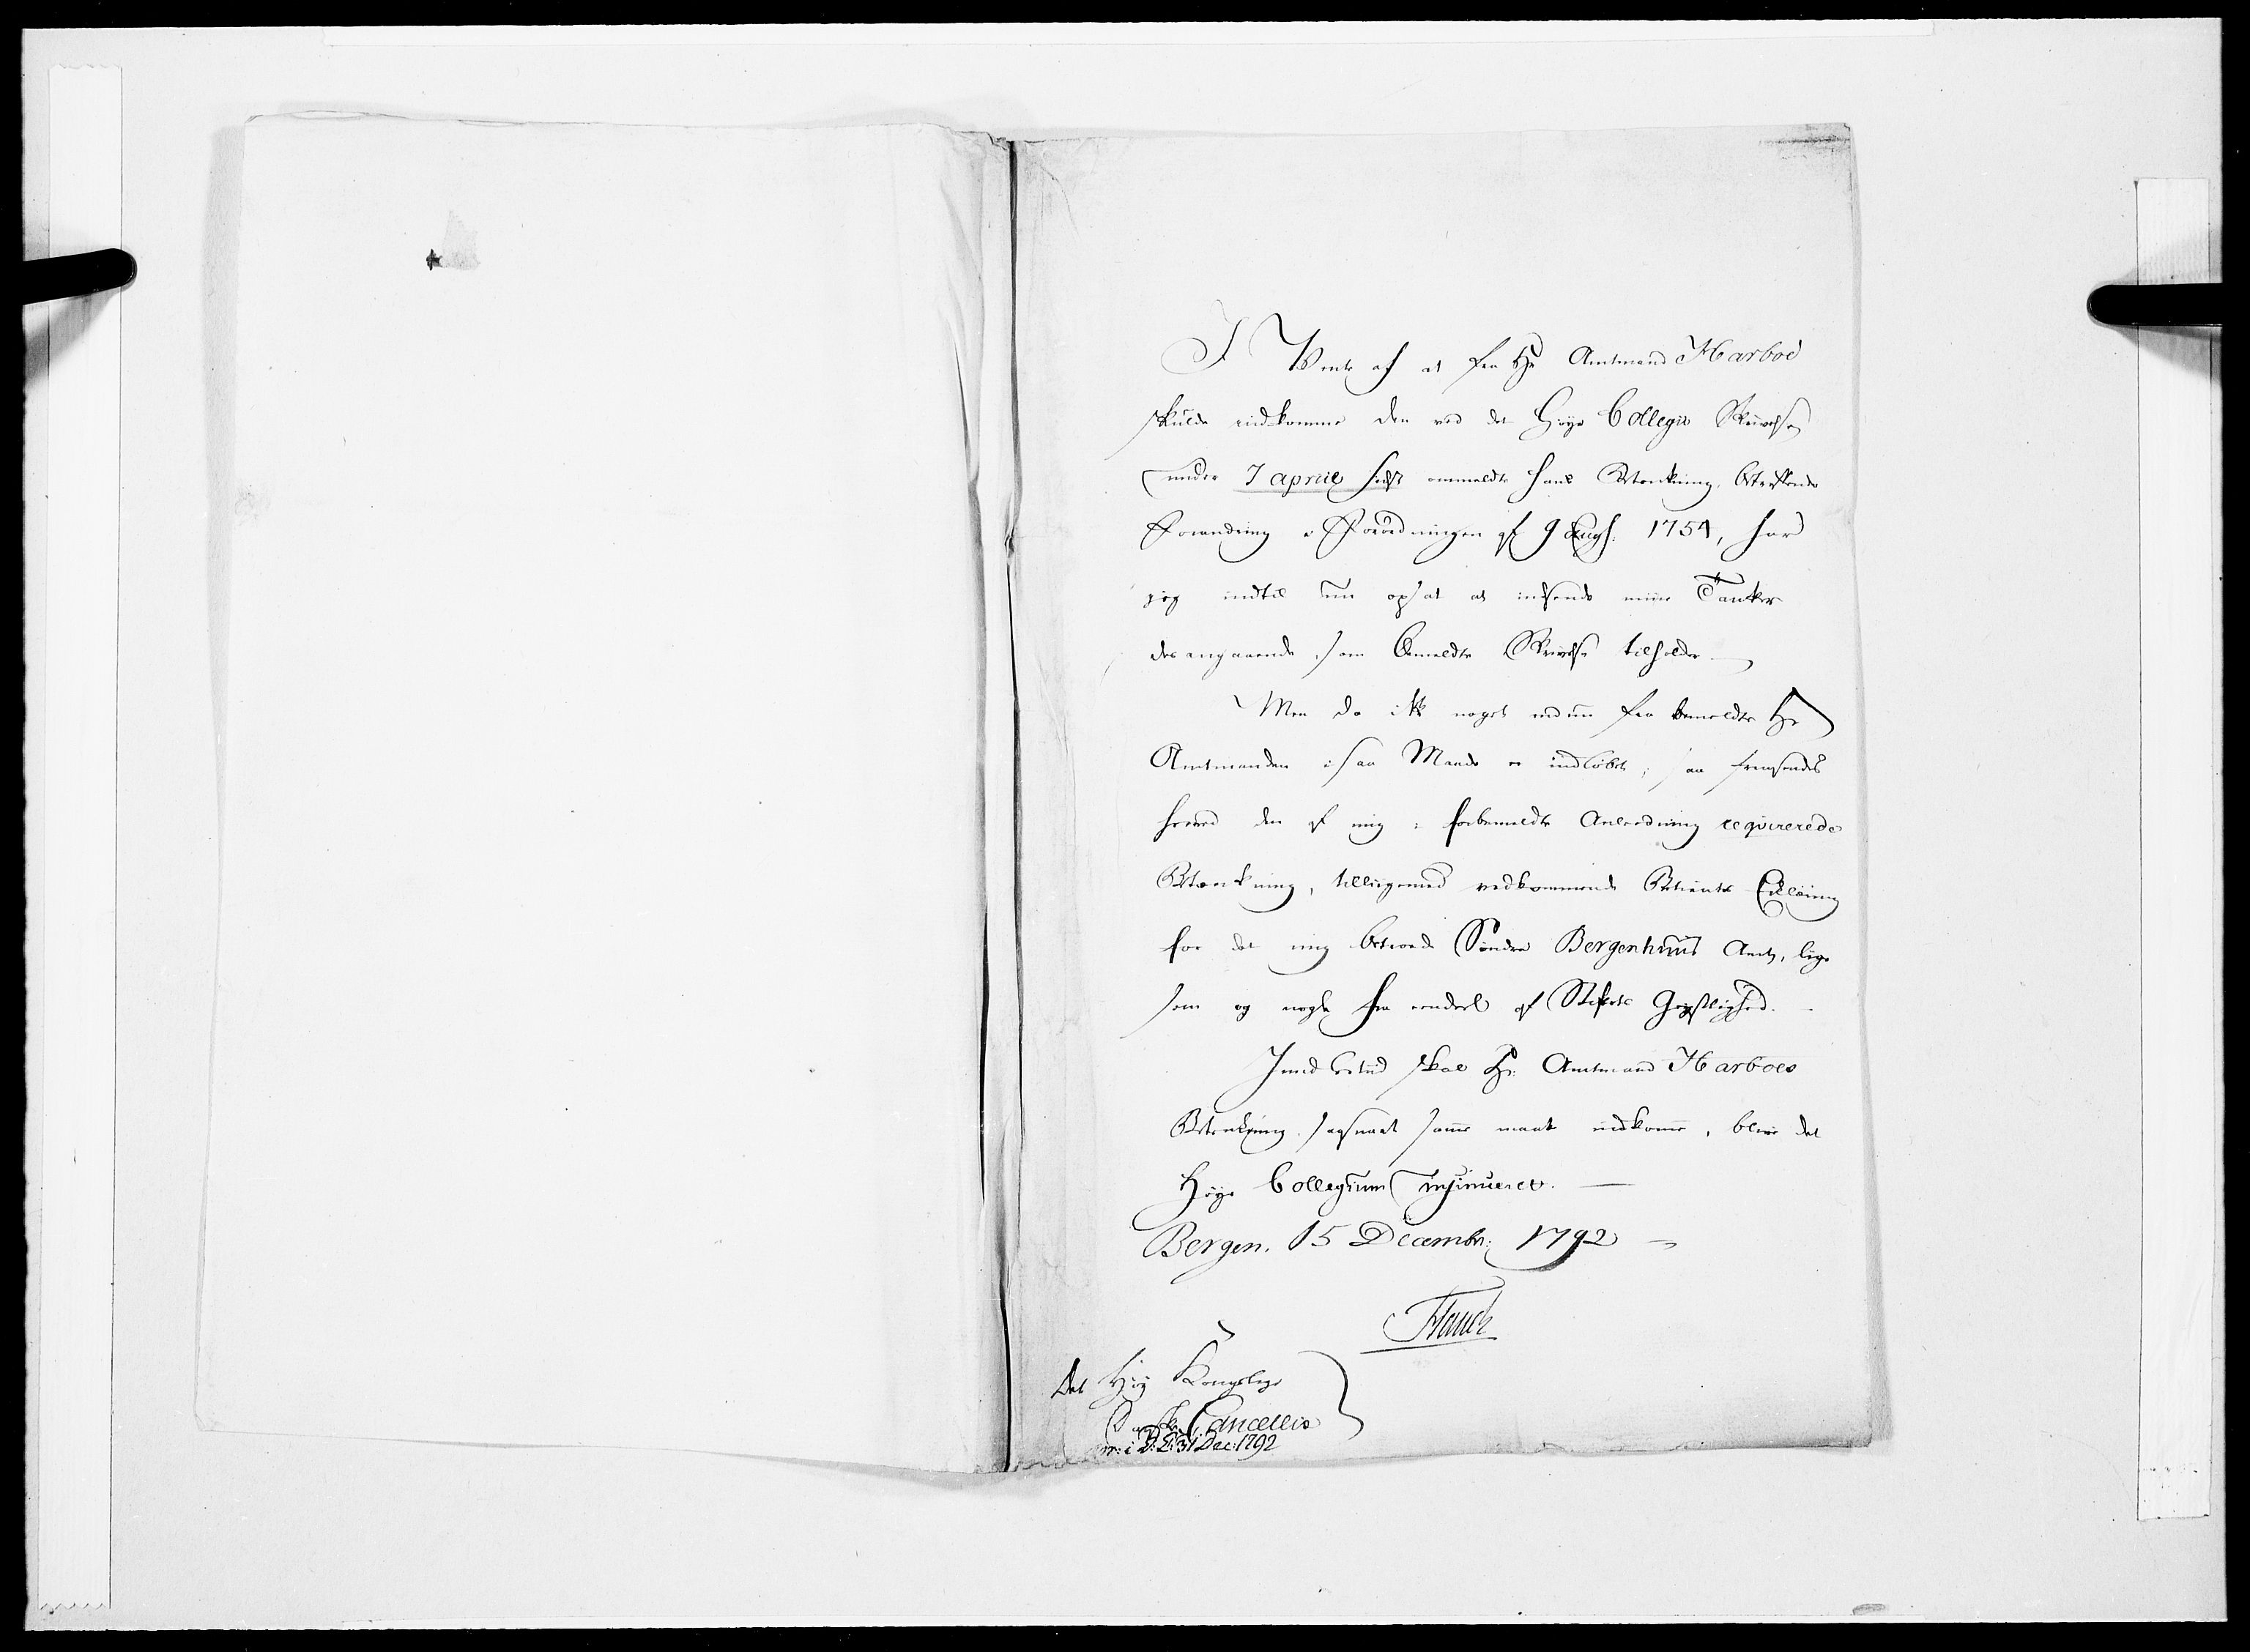 I Vente af at fra Hr Amtmand Harboe
skulde indkomme den ved det Høye Collegii Skrivelse
under 7 april sidst ommeldte hans Betænkning, betreffende
Forandring i Forordningen af 9 Augs: 1754, har
jeg indtil nu opsat at indsende mine Tanker
des angaaende, som bemeldte Skrivelse tilholder
Men da ikke noget endnu fra bemeldte Hr
Amtmanden i saa Maade er indløbet, saa fremsendes
herved den af mig i forbemeldte Anledning reqvirerede
Betænkning, tilligemed vedkommende Betients Erklæring
for det mig betroede Søndre Bergenhuus Amt, lige
som og nogle fra eendeel af Stiftets Geistlighed.
Imidlertiid skal Hr: Amtmand Harboes
Betænkning, saasnart samme maatte indkomme, blive det
Høye Collegium insinueret.
Bergen. 15 Decembr: 1792
Hauch
Det Høy Kongelige
Danske Cancellie
31 Dec: 1792